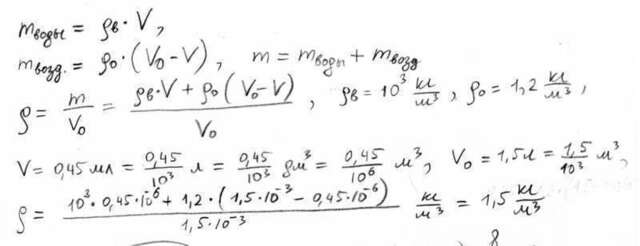 mводы = ρв · V,
mвозд. = ρ₀ · (V₀ - V), m = mводы + mвозд
ρ = m/V₀ = (ρв · V + ρ₀ (V₀ - V))/V₀, ρв = 10³ кг/м³, ρ₀ = 1,2 кг/м³,
V = 0,45 мл = 0,45/10³ л = 0,45/10³ дм³ = 0,45/10⁶ м³, V₀ = 1,5 л = 1,5/10³ м³,
ρ = (10³ · 0,45 · 10⁻⁶ + 1,2 · (1,5 · 10⁻³ - 0,45 · 10⁻⁶))/(1,5 · 10⁻³) кг/м³ = 1,5 кг/м³